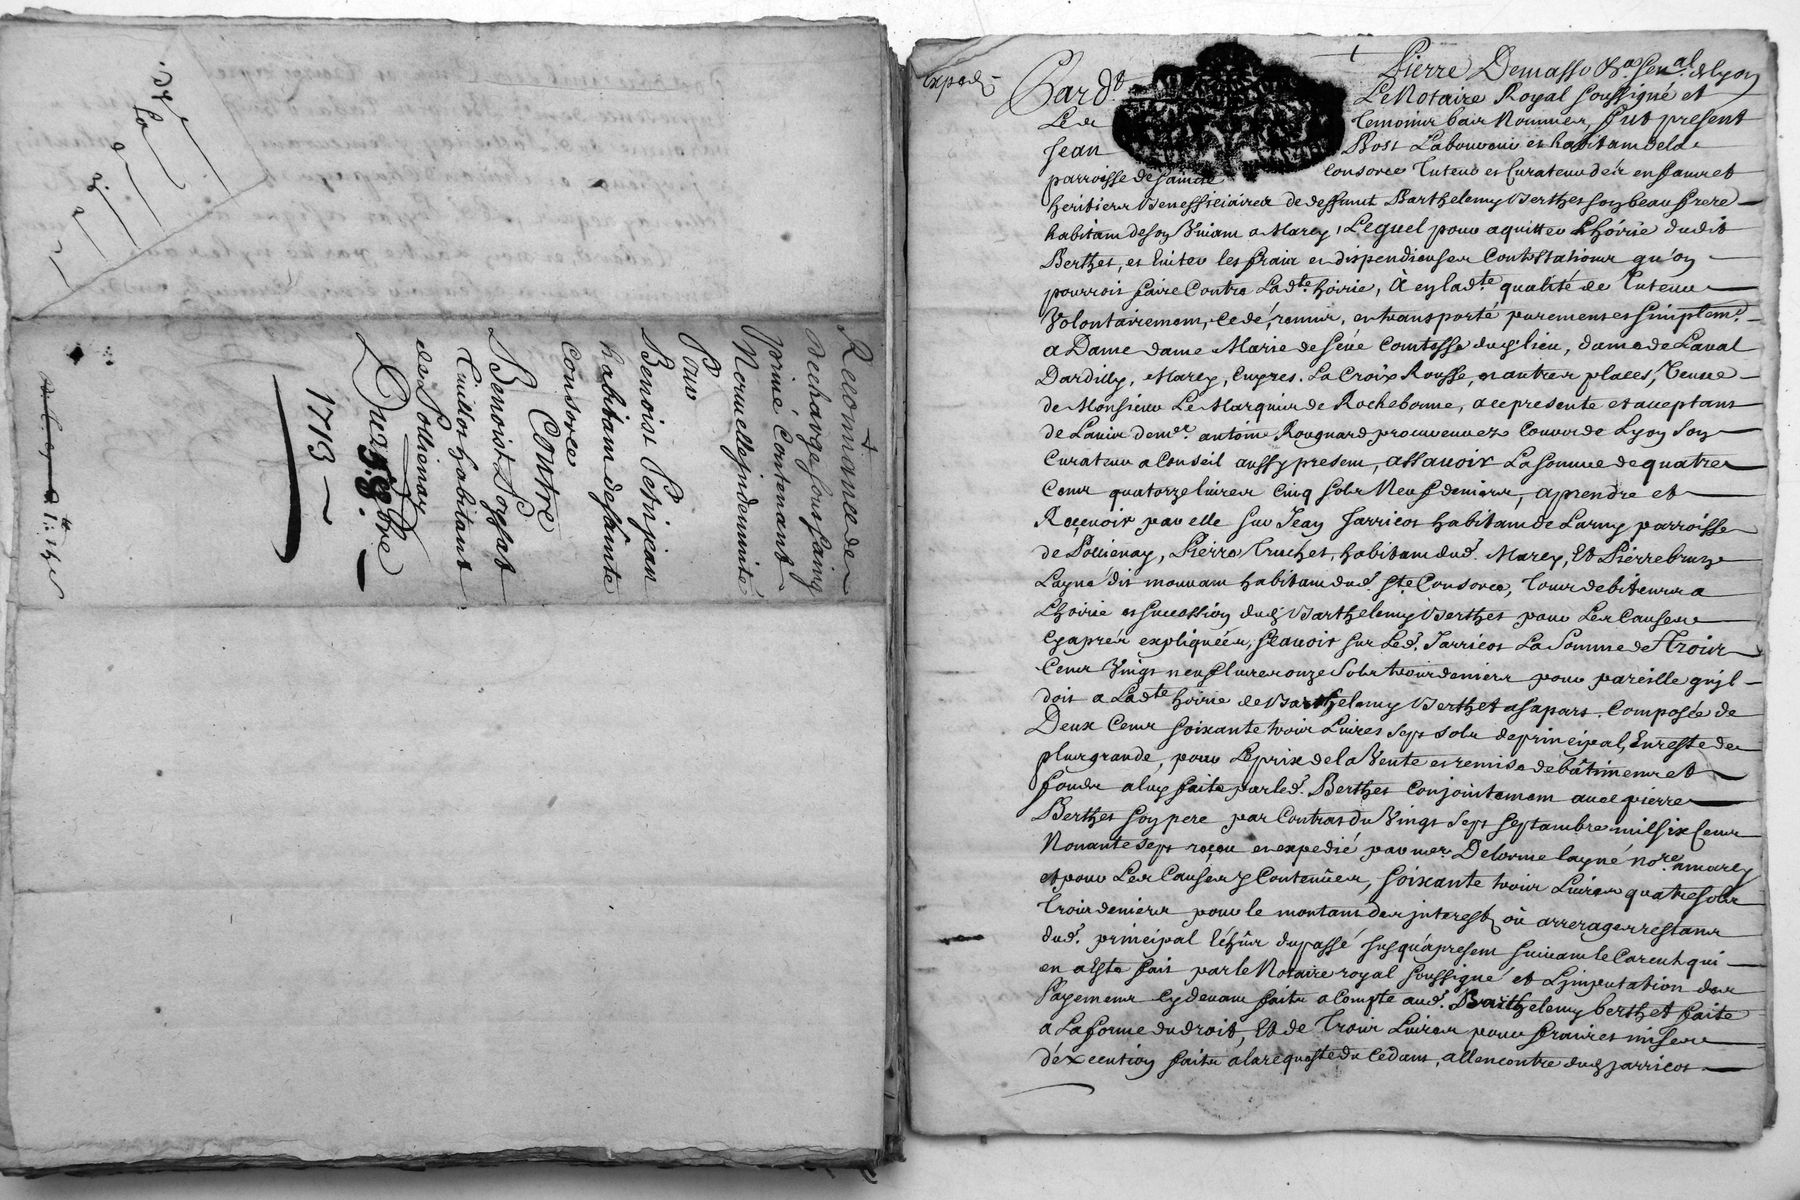 Reconnaissance de
decharge sous saing
privé Contenant
Nouvelle jndemnité
Pour
Benoist Petitjean
habitant de sainte
Consorce
Contre
Benoist Poyzat
Tuillor habitant
de Pollienay
Du 8e. xbre
1713
expedi
Par dt Pierre Demasso &a. senal. de Lyon
Le Notaire Royal soussigné et
Les temoins bas Nommes, fut present
Jean Bost Laboureur et habitant de la
parroisse de sainte Consorce tuteur et Curateur des enfans et
heritiers Beneffieiaires de deffunt Barthelemy Berthet son beau frere
habitant de son Vivant a Marcy, Lequel pour aquitter Lhoirie dudit
Berthet, et eviter les fraix et dispendieuses Contestations qu'on
pourroit faire Contre Ladte. hoirie, À en ladte qualité de Tuteur
Volontairement, cedé, remis, et transporté purement et simplemt.
a Dame dame Marie de séve Comtesse du lieu, dame de Laval
Dardilly, Marcy, Cuyres. La Croix Rousse, et autres places, Veuve
de Monsieur Le Marquis de Rochebonne, acy presente et acceptant
de Lavis de mer. antoine Rougnard procureur ez Cours de Lyon son
Curateur a Conseil aussy present, assavoir La somme de quatre
Cens quatorze livres Cinq sols Neuf deniers, aprendre et
Reçevoir par elle sur Jean Jarricot habitant de Larny parroisse
de Pollienay, Pierre Truchet, habitant dud. Marcy, Et Pierre brun
Layné dit mouvant habitant dud. Ste. Consorce, tous debiteurs a
Lhoirie et succession dud Barthelemy Berthet pour Les Causes
Cyaprés expliquées, sçavoir sur Led. Jarricot La Somme de Trois
Cens Vingt neuf livres onze Sols trois deniers pour pareille qu'jl
doit a Ladte hoirie de Barthelemy Berthet asapart. Composée de
Deux Cens soixante trois Livres Sept sols de principal, En reste de
plus grande, pour Le prix de la Vente et remise de bâtimens et
fonds a luy faite par led. Berthet Conjointement avec pierre
Berthet son pere par Contrat du Vingt Sept Septambre mil six Cens
Nonante Sept reçeu et expedié par mer. Delorme layné nore. a marcy
et pour Les Causes y Contenües, soixante trois Livres quatre sols
trois deniers pour le montant des jnterest, où arrerages restans
dud. principal léhûs du passé jusqu'àpresent suivant le Carcul qui
en a Este fait par le Notaire royal soussigné et L'jmputation des
Payemens Cydevant faits a Compte aud. Barthelemy berthet faite
a La forme du droit, Et de Trois Livres pour frais et mises
d'éxecution faits a la requeste du Cedant, allencontre dud Jarricot